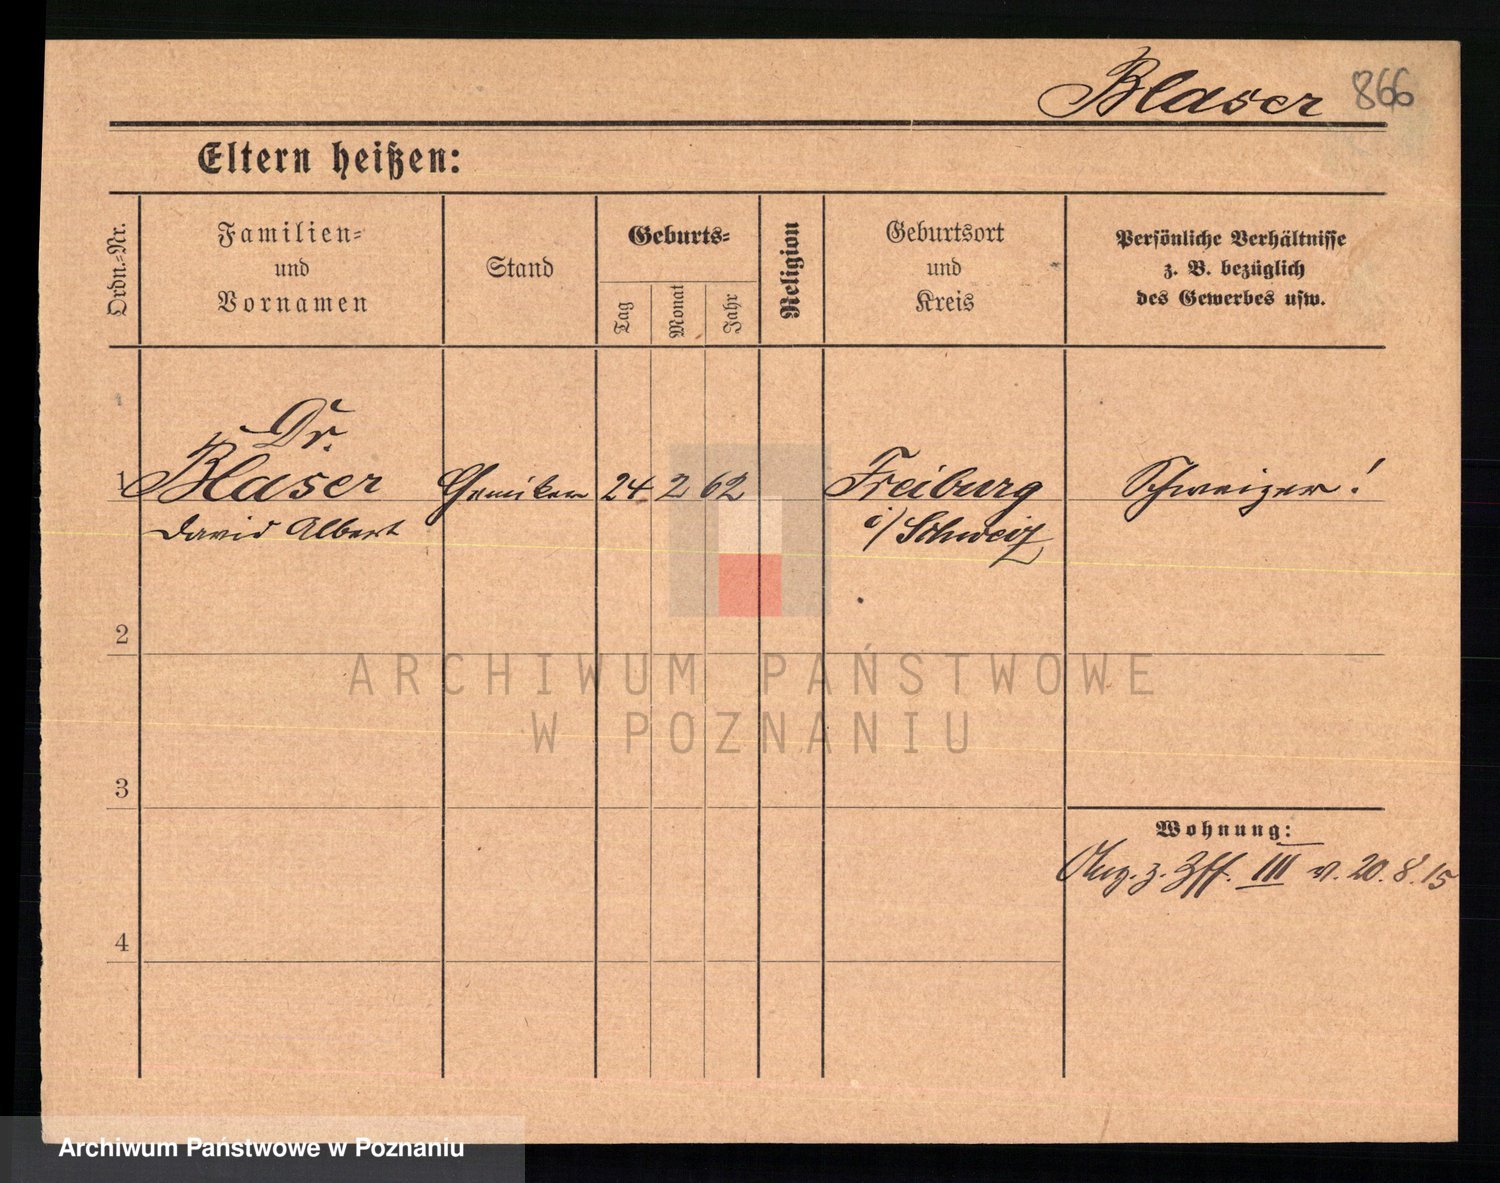 Blaser 866
Eltern heißen:
Ordn.-Nr.
Familien-
und
Vornamen
Stand
Geburts-
Tag
Monat
Jahr
Religion
Geburtsort
und
Kreis
Persönliche Verhältnisse
z. B. bezüglich
des Gewerbes usw.
Dr.
1 Blaser Chemiker 24 2 62 Freiburg Schweizer!
David Albert i/Schweiz
2
ARCHIWUM PAŃSTWOWE
W POZNANIU
3
Wohnung:
z. Zff. III v. 20.8.15
4
Archiwum Państwowe w Poznaniu